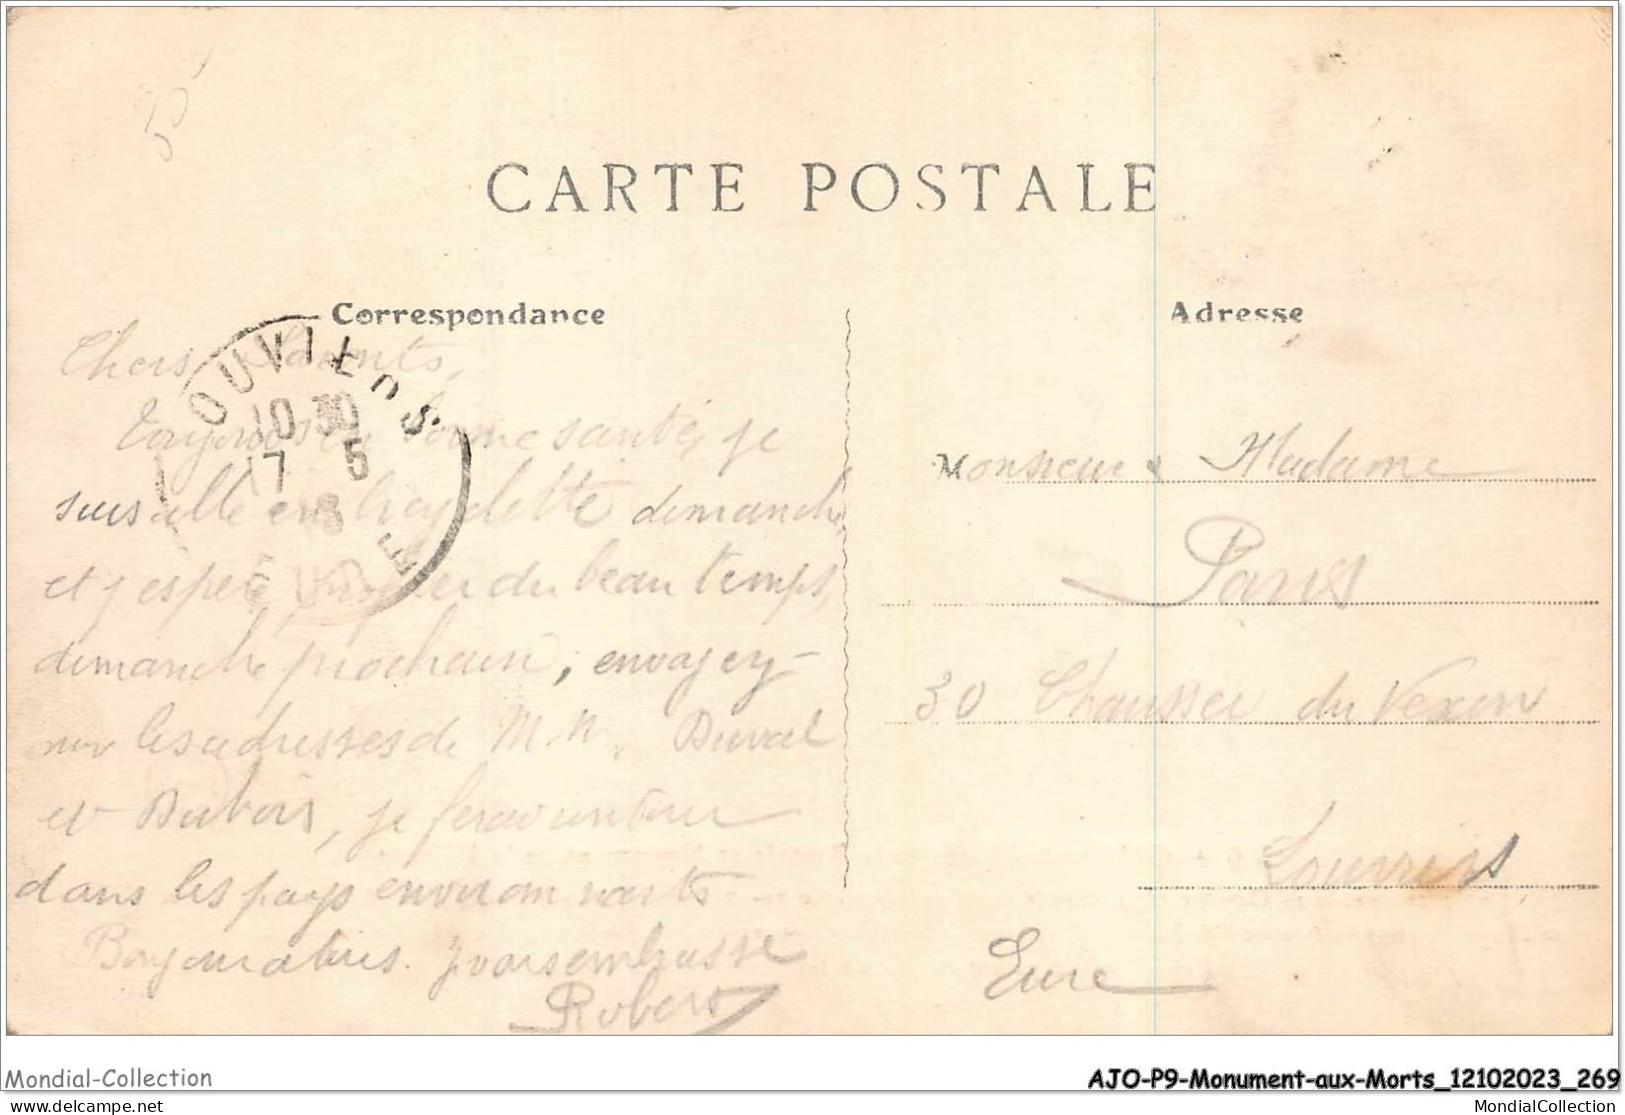 5
CARTE POSTALE
Correspondance
Adresse
LOUVIERS
10 30
17 5
EURE
Chers Parents,
Toujours en bonne santé, je
suis allé en bicyclette dimanche
et j'espère profiter du beau temps
dimanche prochain, envoyez-
moi les adresses de M. M. Duval
et Dubois, je ferai un tour
dans les pays environnants
Bonjour à tous. Je vous embrasse
Robert
Monsieur & Madame
Paris
30 Chaussée du Vexin
Louviers
Eure
Mondial-Collection
AJO-P9-Monument-aux-Morts_12102023_269
delcampe.net
MondialCollection